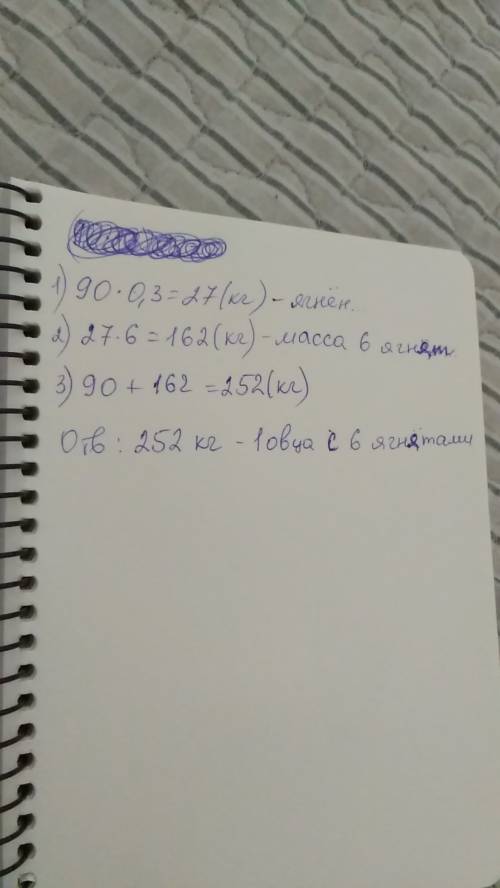 1) 90 · 0,3 = 27 (кг) - ягнён.
2) 27 · 6 = 162 (кг) - масса 6 ягнят.
3) 90 + 162 = 252 (кг)
Отв : 252 кг - 1 овца с 6 ягнятами